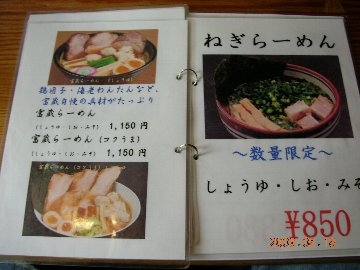 宮蔵らーめん(しょうゆ)
鶏団子・海老わんたんなど、
宮蔵自慢の具材がたっぷり
宮蔵らーめん
(しょうゆ・しお・みそ) 1,150円
宮蔵らーめん(コクうま)
(しょうゆ・しお・みそ) 1,150円
宮蔵らーめん(コクうま)
ねぎらーめん
～数量限定～
しょうゆ・しお・みそ
¥850